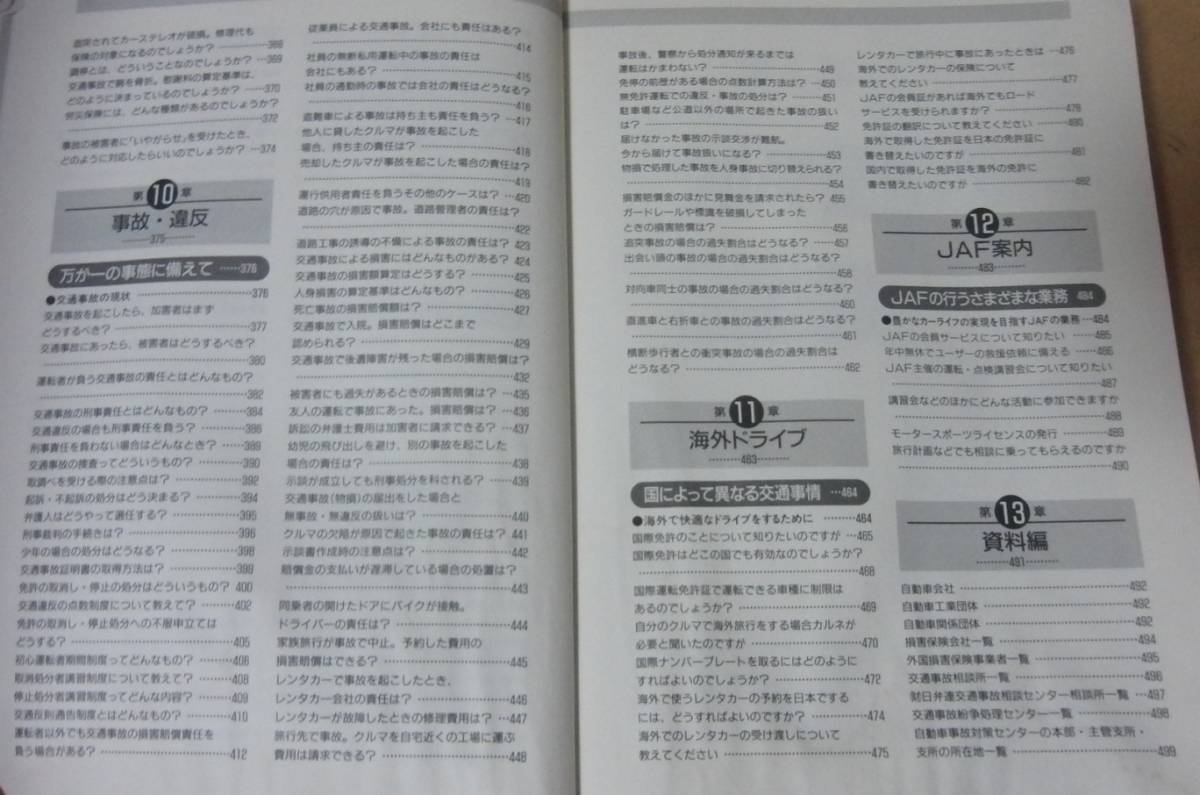 追突されてカーステレオが破損。修理代も
保険の対象になるのでしょうか？………368
調停とは、どういうことなのでしょうか？…369
交通事故で腕を骨折。慰謝料の算定基準は、
どのように決まっているのでしょうか？…370
労災保険には、どんな種類があるのでしょうか？
………372
事故の被害者に「いやがらせ」を受けたとき、
どのように対応したらいいのでしょうか？…374
第10章
事故・違反
375
万が一の事態に備えて……376
●交通事故の現状………376
交通事故を起こしたら、加害者はまず
どうするべき？………377
交通事故にあったら、被害者はどうするべき？
………380
運転者が負う交通事故の責任とはどんなもの？
………382
交通事故の刑事責任とはどんなもの？………384
交通違反の場合も刑事責任を負う？………386
刑事責任を負わない場合はどんなとき？……389
交通事故の捜査ってどういうもの？………390
取調べを受ける際の注意点は？………392
起訴・不起訴の処分はどう決まる？………394
弁護人はどうやって選任する？………395
刑事裁判の手続きは？………396
少年の場合の処分はどうなる？………398
交通事故証明書の取得方法は？………399
免許の取消し・停止の処分はどういうもの？ 400
交通違反の点数制度について教えて？………402
免許の取消し・停止処分への不服申立ては
どうする？………405
初心運転者期間制度ってどんなもの？………406
取消処分者講習制度について教えて？………408
停止処分者講習制度ってどんな内容？………409
交通反則通告制度とはどんなもの？………410
運転者以外でも交通事故の損害賠償責任を
負う場合がある？………412
従業員による交通事故。会社にも責任はある？
………414
社員の無断私用運転中の事故の責任は
会社にもある？………415
社員の通勤時の事故では会社の責任はどうなる？
………416
盗難車による事故は持ち主も責任を負う？…417
他人に貸したクルマが事故を起こした
場合、持ち主の責任は？………418
売却したクルマが事故を起こした場合の責任は？
………419
運行供用者責任を負うその他のケースは？…420
道路の穴が原因で事故。道路管理者の責任は？
………422
道路工事の誘導の不備による事故の責任は？ 423
交通事故による損害にはどんなものがある？ 424
交通事故の損害額算定はどうする？………425
人身損害の算定基準はどんなもの？………426
死亡事故の損害賠償額は？………427
交通事故で入院。損害賠償はどこまで
認められる？………429
交通事故で後遺障害が残った場合の損害賠償は？
………432
被害者にも過失があるときの損害賠償は？…435
友人の運転で事故にあった。損害賠償は？…436
訴訟の弁護士費用は加害者に請求できる？…437
幼児の飛び出しを避け、別の事故を起こした
場合の責任は？………438
示談が成立しても刑事処分を科される？……439
交通事故(物損)の届出をした場合と
無事故・無違反の扱いは？………440
クルマの欠陥が原因で起きた事故の責任は？ 441
示談書作成時の注意点は？………442
賠償金の支払いが遅滞している場合の処置は？
………443
同乗者の開けたドアにバイクが接触。
ドライバーの責任は？………444
家族旅行が事故で中止。予約した費用の
損害賠償はできる？………445
レンタカーで事故を起こしたとき、
レンタカー会社の責任は？………446
レンタカーが故障したときの修理費用は？…447
旅行先で事故。クルマを自宅近くの工場に運ぶ
費用は請求できる？………448
事故後、警察から処分通知が来るまでは
運転はかまわない？………449
免停の前歴がある場合の点数計算方法は？…450
無免許運転での違反・事故の処分は？………451
駐車場など公道以外の場所で起きた事故の扱い
は？………452
届けなかった事故の示談交渉が難航。
今から届けて事故扱いになる？………453
物損で処理した事故を人身事故に切り替えられる？
………454
損害賠償金のほかに見舞金を請求されたら？ 455
ガードレールや標識を破損してしまった
ときの損害賠償は？………456
追突事故の場合の過失割合はどうなる？……457
出会い頭の事故の場合の過失割合はどうなる？
………458
対向車同士の事故の場合の過失割合はどうなる？
………460
直進車と右折車との事故の過失割合はどうなる？
………461
横断歩行者との衝突事故の場合の過失割合は
どうなる？………462
第11章
海外ドライブ
463
国によって異なる交通事情…464
●海外で快適なドライブをするために………464
国際免許のことについて知りたいのですが…465
国際免許はどこの国でも有効なのでしょうか？
………468
国際運転免許証で運転できる車種に制限は
あるのでしょうか？………469
自分のクルマで海外旅行をする場合カルネが
必要と聞いたのですが………470
国際ナンバープレートを取るにはどのように
すればよいのでしょうか？………472
海外で使うレンタカーの予約を日本でする
には、どうすればよいのですか？………474
海外でのレンタカーの受け渡しについて
教えてください………475
レンタカーで旅行中に事故にあったときは…476
海外でのレンタカーの保険について
教えてください………477
JAFの会員証があれば海外でもロード
サービスを受けられますか？………479
免許証の翻訳について教えてください………480
海外で取得した免許証を日本の免許証に
書き替えたいのですが………481
国内で取得した免許証を海外の免許に
書き替えたいのですが………482
第12章
JAF案内
483
JAFの行うさまざまな業務 484
●豊かなカーライフの実現を目指すJAFの業務…484
JAFの会員サービスについて知りたい………485
年中無休でユーザーの救援依頼に備える……486
JAF主催の運転・点検講習会について知りたい
………487
講習会などのほかにどんな活動に参加できますか
………488
モータースポーツライセンスの発行………489
旅行計画なども相談に乗ってもらえるのですか
………490
第13章
資料編
491
自動車会社………492
自動車工業団体………492
自動車関係団体………492
損害保険会社一覧………494
外国損害保険事業者一覧………495
交通事故相談所一覧………496
財日弁連交通事故相談センター相談所一覧…497
交通事故紛争処理センター一覧………498
自動車事故対策センターの本部・主管支所・
支所の所在地一覧………499